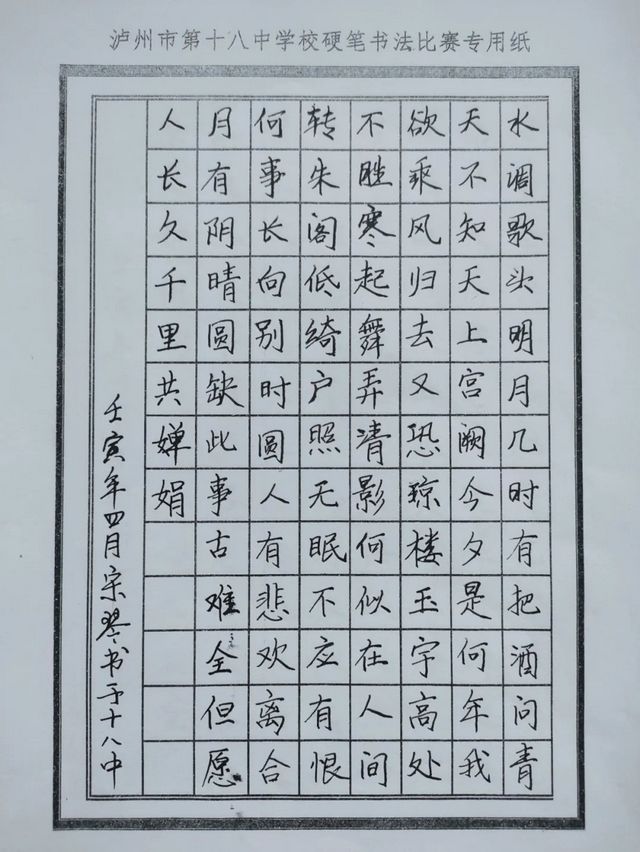 泸州市第十八中学校硬笔书法比赛专用纸
水调歌头明月几时有把酒问青
天不知天上宫阙今夕是何年我
欲乘风归去又恐琼楼玉宇高处
不胜寒起舞弄清影何似在人间
转朱阁低绮户照无眠不应有恨
何事长向别时圆人有悲欢离合
月有阴晴圆缺此事古难全但愿
人长久千里共婵娟
壬寅年四月宋琴书于十八中